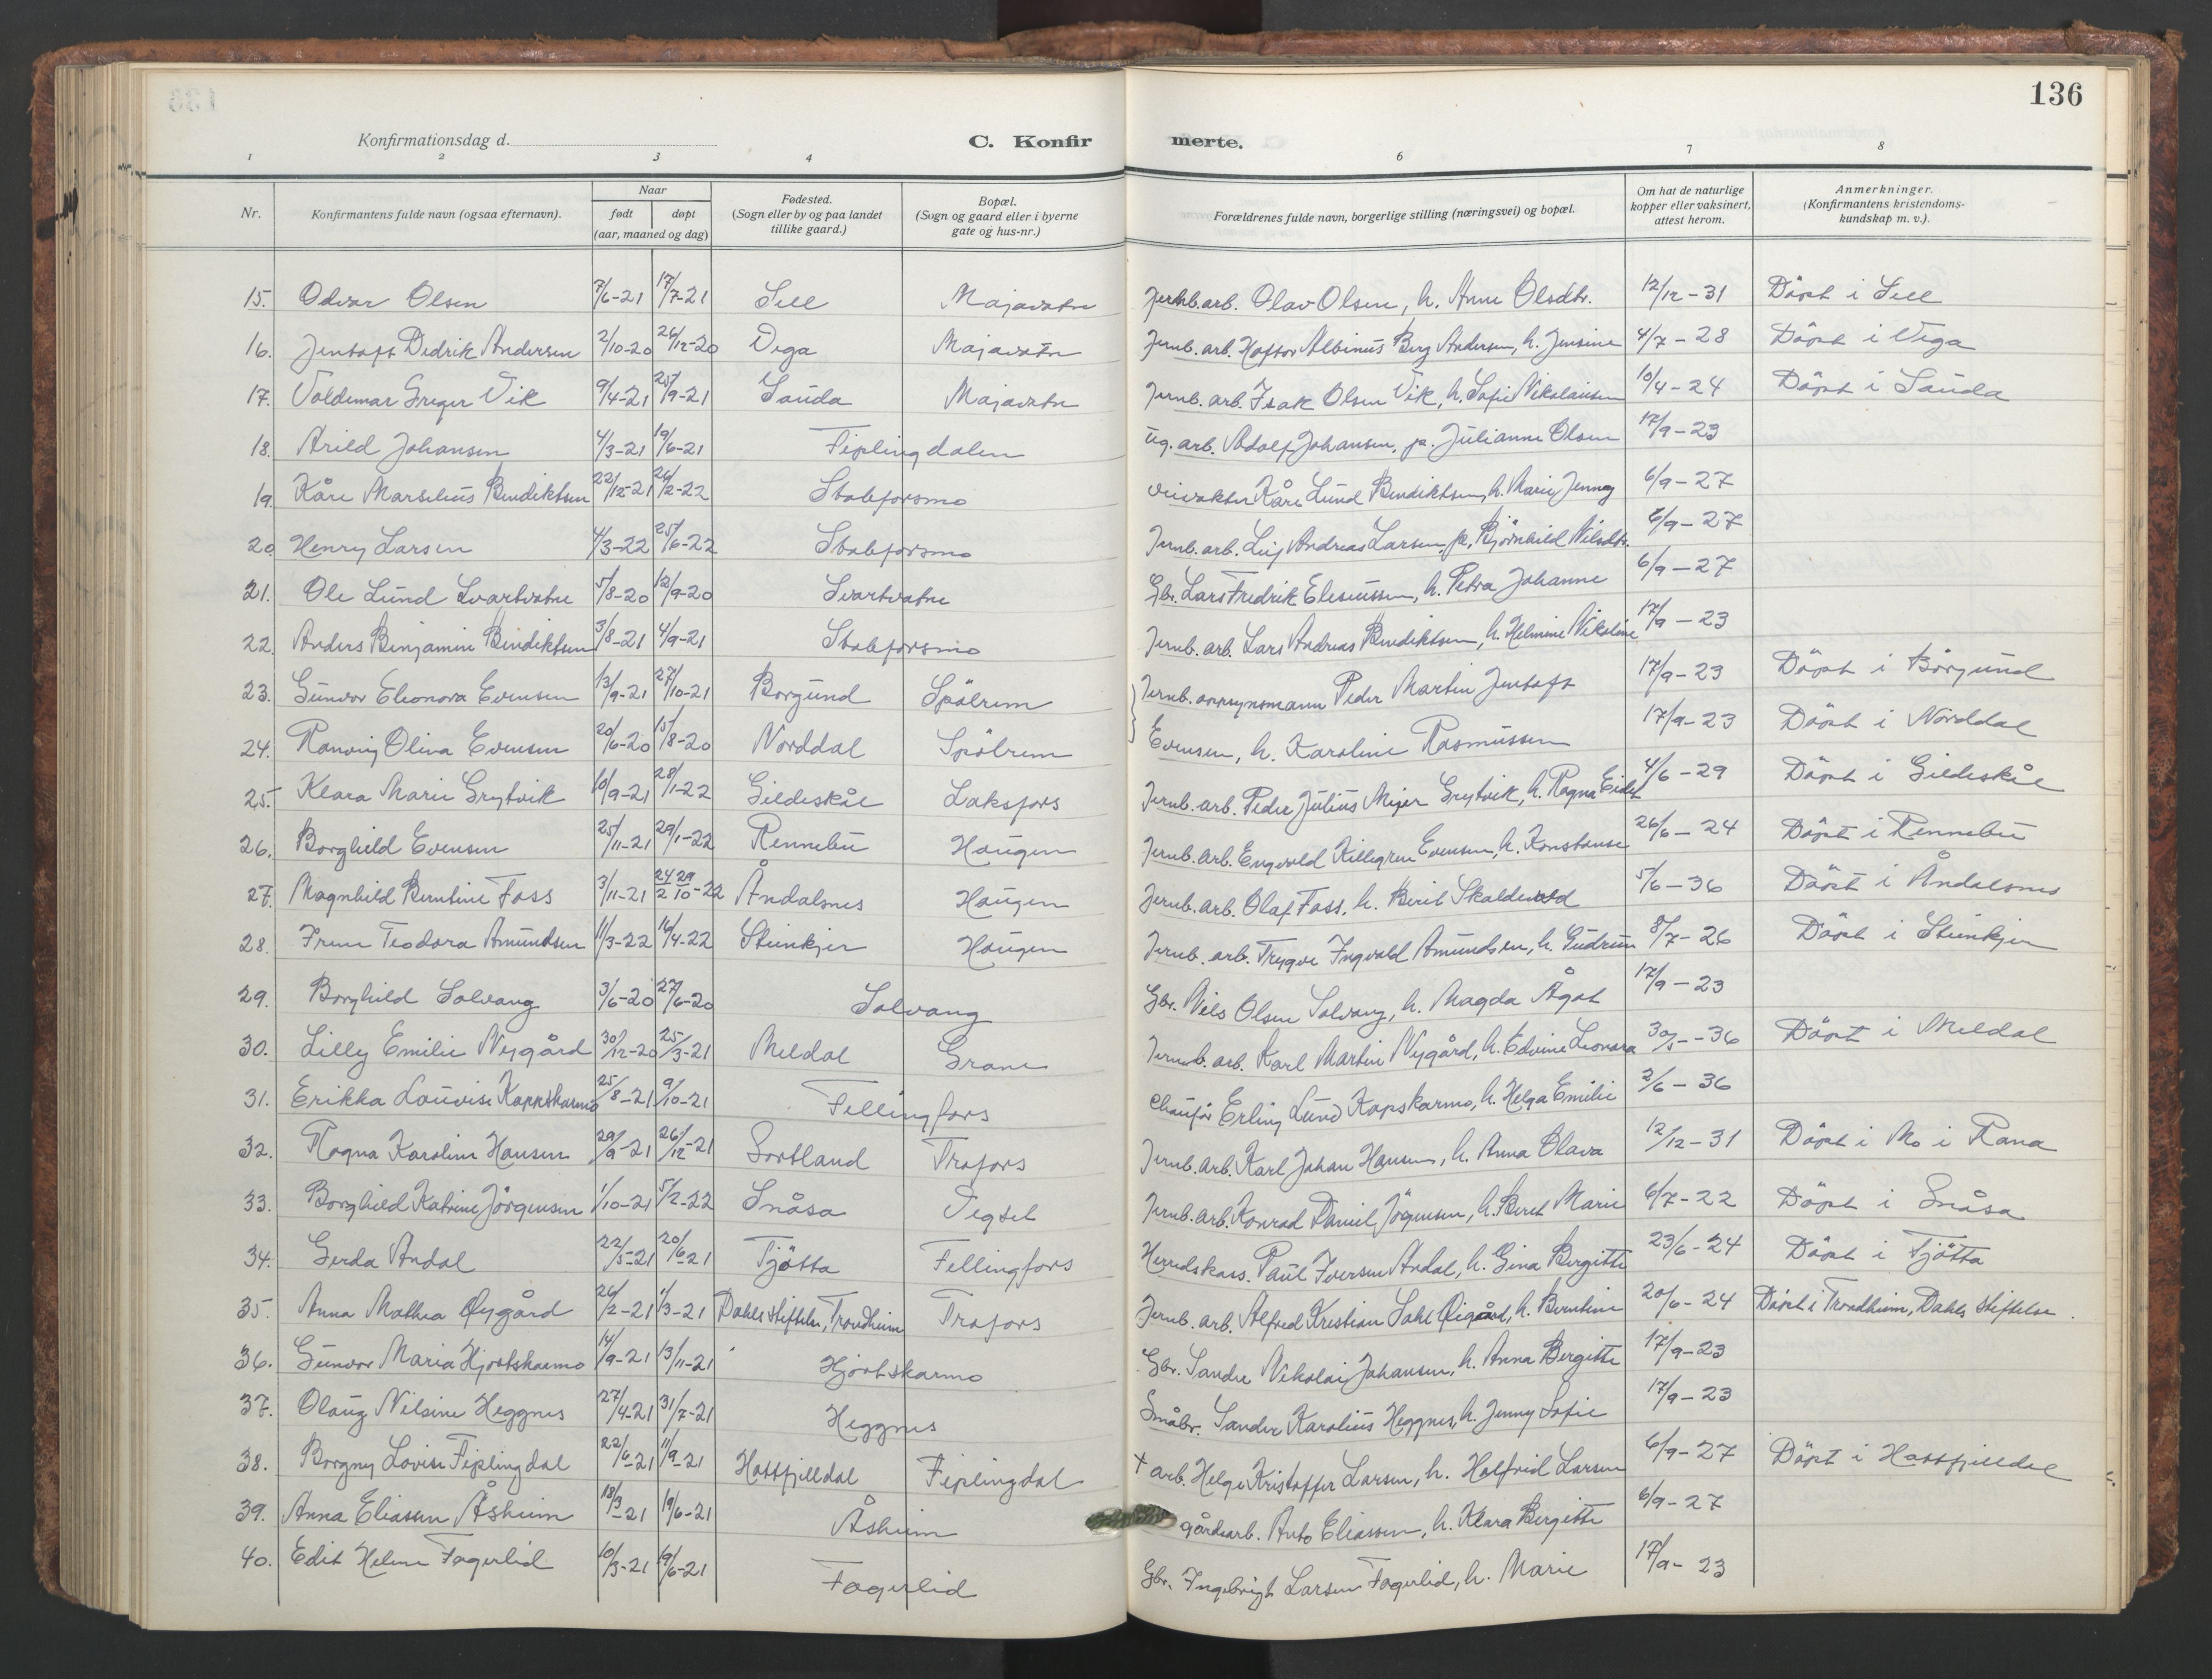 136
Konfirmationsdag d.
C. Konfirmerte.
1 2 3 4 6 7 8
Nr. Konfirmantens fulde navn (ogsaa efternavn). Naar født døpt (aar, maaned og dag) Fødested. (Sogn eller by og paa landet tillike gaard.) Bopæl. (Sogn og gaard eller i byerne gate og hus-nr.) Forældrenes fulde navn, borgerlige stilling (næringsvei) og bopæl. Om hat de naturlige kopper eller vaksinert, attest herom. Anmerkninger. (Konfirmantens kristendomskundskap m. v.).
15. Odvar Olsen 7/6-21 17/7-21 Sell Majavatn Jernb.arb. Olav Olsen, h. Anne Olsdtr. 12/12-31 Döpt i Sell
16. Jentoft Didrik Andersen 2/10-20 26/12-20 Vega Majavatn Jernb. arb. Haftor Albinus Berg Andersen, h. Jensine 4/7-28 Döpt i Vega
17. Valdemar Greger Vik 9/4-21 25/9-21 Sauda Majavatn Jernb. arb. Isak Olsen Vik, h. Sofie Nikolaisen 10/4-24 Döpt i Sauda
18. Arild Johansen 4/3-21 19/6-21 Fiplingdalen ug. arb. Adolf Johansen, p. Julianne Olsen 17/9-23
19. Kåre Marselius Bendiktsen 22/12-21 26/2-22 Stabforsmo Veivokter Kåre Lund Bendiktsen, h. Marie Jenny 6/9-27
20. Henry Larsen 4/3-22 25/6-22 Stabforsmo Jernb. arb. Leif Andreas Larsen, p. Björnhild Nilsdtr. 6/9-27
21. Ole Lund Svartvatne 5/8-20 12/9-20 Svartvatne Gbr. Lars Fredrik Eleseussen, h. Petra Johanne 6/9-27
22. Anders Benjamin Bendiktsen 3/8-21 4/9-21 Stabforsmo Jernb. arb. Lars Andreas Bendiktsen, h. Helmine Nikoline 17/9-23
23. Gunvor Eleonora Evensen 13/9-21 27/10-21 Borgund Spölrem Jernb. oppsynsmann Peder Martin Jentoft 17/9-23 Döpt i Borgund
24. Ranvig Oliva Evensen 20/6-20 15/8-20 Norddal Spölrem Evensen, h. Karoline Rasmussen 17/9-23 Döpt i Norddal
25. Klara Marie Grytvik 10/9-21 28/1-22 Gildeskål Laksfors Jernb. arb. Peder Julius Meyer Grytvik, h. Ragna Eidet 4/6-29 Döpt i Gildeskål
26. Borghild Evensen 25/11-21 29/1-22 Rennebu Haugen Jernb. arb. Engvald Killegren Evensen, h. Konstanse 26/6-24 Döpt i Rennebu
27. Magnhild Berntine Foss 3/11-21 24/2 29/10-22 Åndalsnes Haugen Jernb. arb. Olaf Foss, h. Berit Skaldevold 5/6-36 Döpt i Åndalsnes
28. Irene Teodora Amundsen 11/3-22 16/4-22 Steinkjer Haugen Jernb. arb. Trygve Ingvald Amundsen, h. Gudrun 8/7-26 Döpt i Steinkjer
29. Borghild Solvang 3/6-20 27/6-20 Solvang Gbr. Nils Olsen Solvang, h. Magda Ågot 17/9-23
30. Lilly Emilie Nygård 30/12-20 25/3-21 Meldal Grane Jernb. arb. Karl Martin Nygård, h. Edvine Leonora 30/5-36 Döpt i Meldal
31. Erikka Louvise Kappskarmo 25/8-21 9/10-21 Fellingfors Chaufør Erling Lund Kapskarmo, h. Helga Emilie 2/6-36
32. Ragna Karoline Hansen 29/9-21 26/12-21 Sortland Trofors Jernb. arb. Karl Johan Hansen, h. Anna Olava 12/12-31 Döpt i Mo i Rana
33. Borghild Katrine Jörgensen 1/10-21 5/2-22 Snåsa Vegset Jernb. arb. Konrad Daniel Jörgensen, h. Beret Marie 6/7-22 Döpt i Snåsa
34. Gerda Andal 22/5-21 20/6-21 Tjötta Fellingfors Herredskass. Paul Iversen Andal, h. Gina Bergitte 23/6-24 Döpt i Tjötta
35. Anna Mathea Øygård 26/2-21 1/3-21 Dahls stiftelse, Trondheim Trofors Jernb. arb. Alfred Kristian Dahl Øigård, h. Berntine 20/6-24 Döpt i Trondheim, Dahls stiftelse.
36. Gunvor Maria Hjortskarmo 14/9-21 13/11-21 Hjortskarmo Gbr. Sander Nikolai Johansen, h. Anna Bergitte 17/9-23
37. Olaug Nilsine Heggnes 27/4-21 31/7-21 Heggnes Småbr. Sander Karolius Heggnes, h. Jenny Sofie 17/9-23
38. Borgny Lovise Fiplingdal 22/6-21 11/9-21 Hattfjelldal Fiplingdal + arb. Helge Kristoffer Larsen, h. Halfrid Larsen 6/9-27 Döpt i Hattfjelldal
39. Anna Eliassen Åsheim 18/3-21 19/6-21 Åsheim gårdsarb. Anto Eliassen, h. Klara Bergitte 6/9-27
40. Edit Helene Fagerlid 10/3-21 19/6-21 Fagerlid Gbr. Ingebrigt Larsen Fagerlid, h. Marie 17/9-23